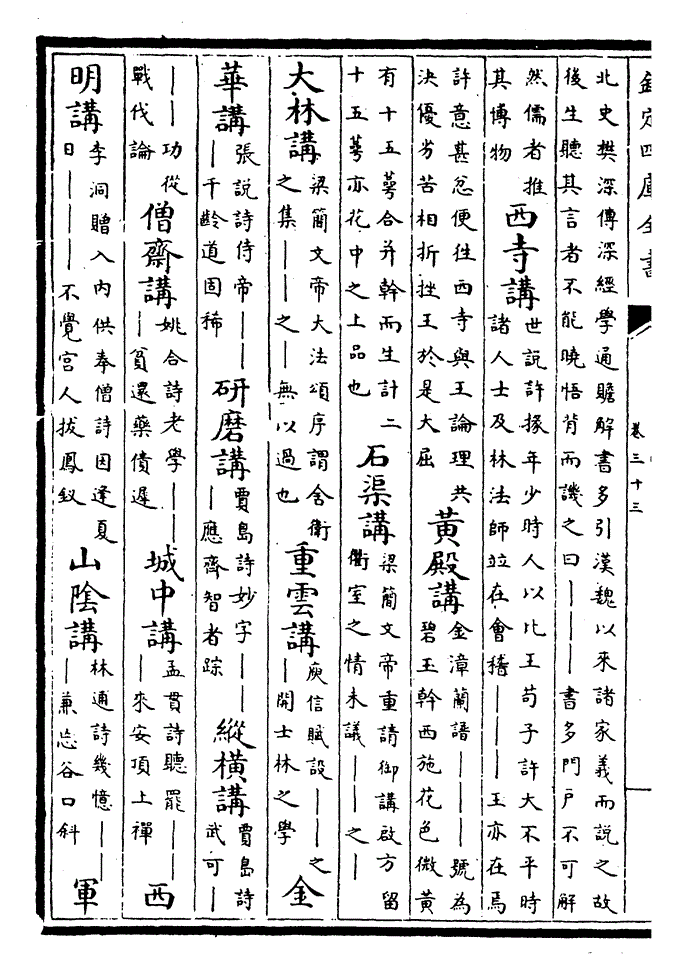 欽定四庫全書
卷三十三
北史樊深傳深經學通贍解書多引漢魏以來諸家義而說之故
後生聽其言者不能曉悟背而譏之曰————書多門戶不可解
然儒者推
其博物
西寺講
世說許掾年少時人以比王苟子許大不平時
諸人士及林法師並在會稽———王亦在焉
許意甚忿便往西寺與王論理共
決優劣苦相折挫王於是大屈
黃殿講
金漳蘭譜———號為
碧玉幹西施花色微黃
有十五蕚合并幹而生計二
十五蕚亦花中之上品也
石渠講
梁簡文帝重請御講啟方留
衢室之情未議——之—
大林講
梁簡文帝大法頌序謂含衛
之集——之—無以過也
重雲講
庾信賦設——之
—開士林之學
金
華講
張說詩侍帝——
—千齡道固稀
研磨講
賈島詩妙字——
—應齊智者踪
縱橫講
賈島詩
武可—
——功從
戰伐論
僧齋講
姚合詩老學——
—貧還藥債遲
城中講
孟貫詩聽罷——
—來安頂上禪
西
明講
李洞贈入內供奉僧詩因逢夏
日————不覺宮人拔鳳釵
山陰講
林逋詩幾憶——
—兼忘谷口斜
軍